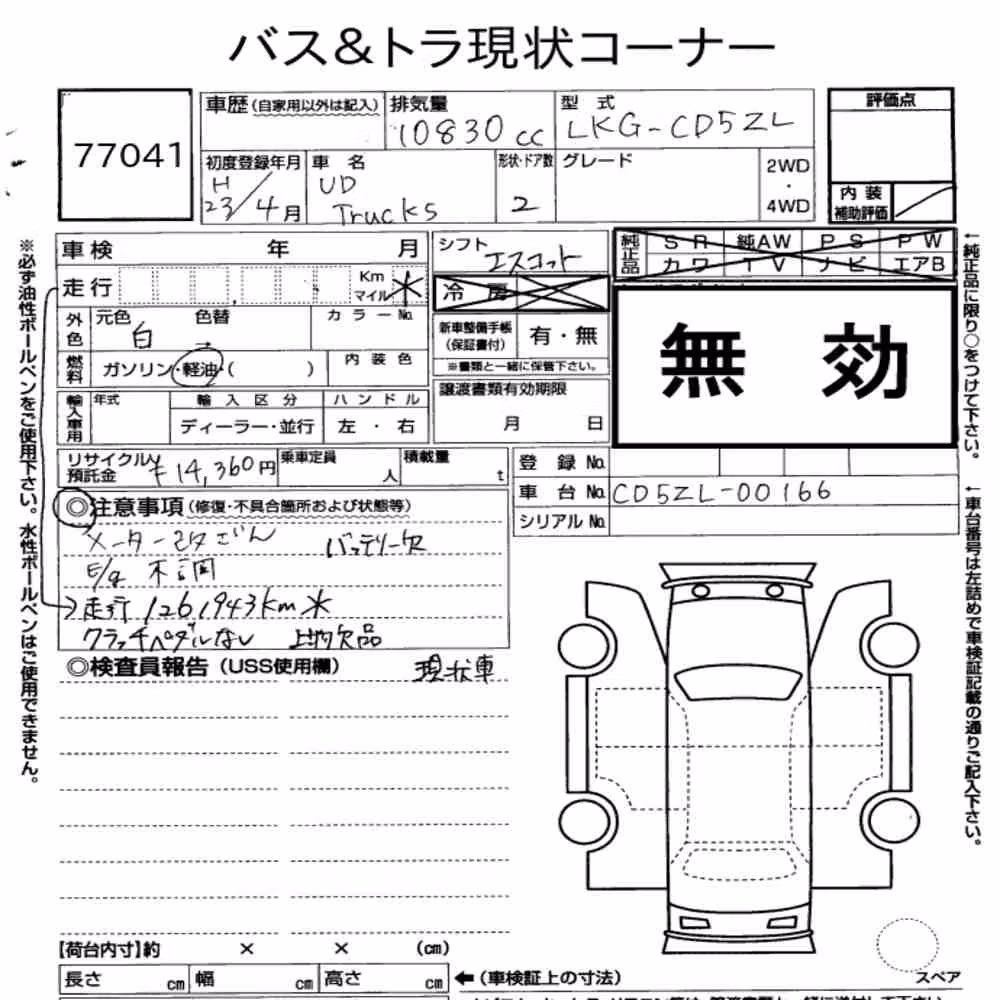 バス&トラ現状コーナー
77041
車歴(自家用以外は記入)
排気量
10830 cc
型 式
LKG-CD5ZL
評価点
初度登録年月
H
23/4月
車 名
UD
Trucks
形状・ドア数
2
グレード
2WD
・
4WD
内 装
補助評価
車 検 年 月
シフト
エスコット
純正品
S R 純AW P S P W
カワ T V ナビ エアB
走 行
Km
マイル
*
冷 房
外色
元色 色替
白 →
カ ラ ー No.
新車整備手帳
(保証書付)
有・無
※書類と一緒に保管下さい。
無 効
燃料
ガソリン・軽油・( )
内 装 色
譲渡書類有効期限
月 日
輸入車用
年式
輸 入 区 分
ディーラー・並行
ハ ン ド ル
左 ・ 右
リサイクル
預託金
¥14,360円
乗車定員
人
積載量
t
登 録 No.
車 台 No.
CD5ZL-00166
シリアル No.
◎注意事項(修復・不具合箇所および状態等)
メーター改ざん バッテリー欠
E/g 不調
走行 126,943km *
クラッチペダルない 上物欠品
◎検査員報告(USS使用欄) 現状車
【荷台内寸】約 × × (cm)
長さ cm 幅 cm 高さ cm
←(車検証上の寸法)
スペア
※必ず油性ボールペンをご使用下さい。水性ボールペンはご使用できません。
←純正品に限り○をつけて下さい。
←車台番号は左詰めで車検証記載の通りご記入下さい。